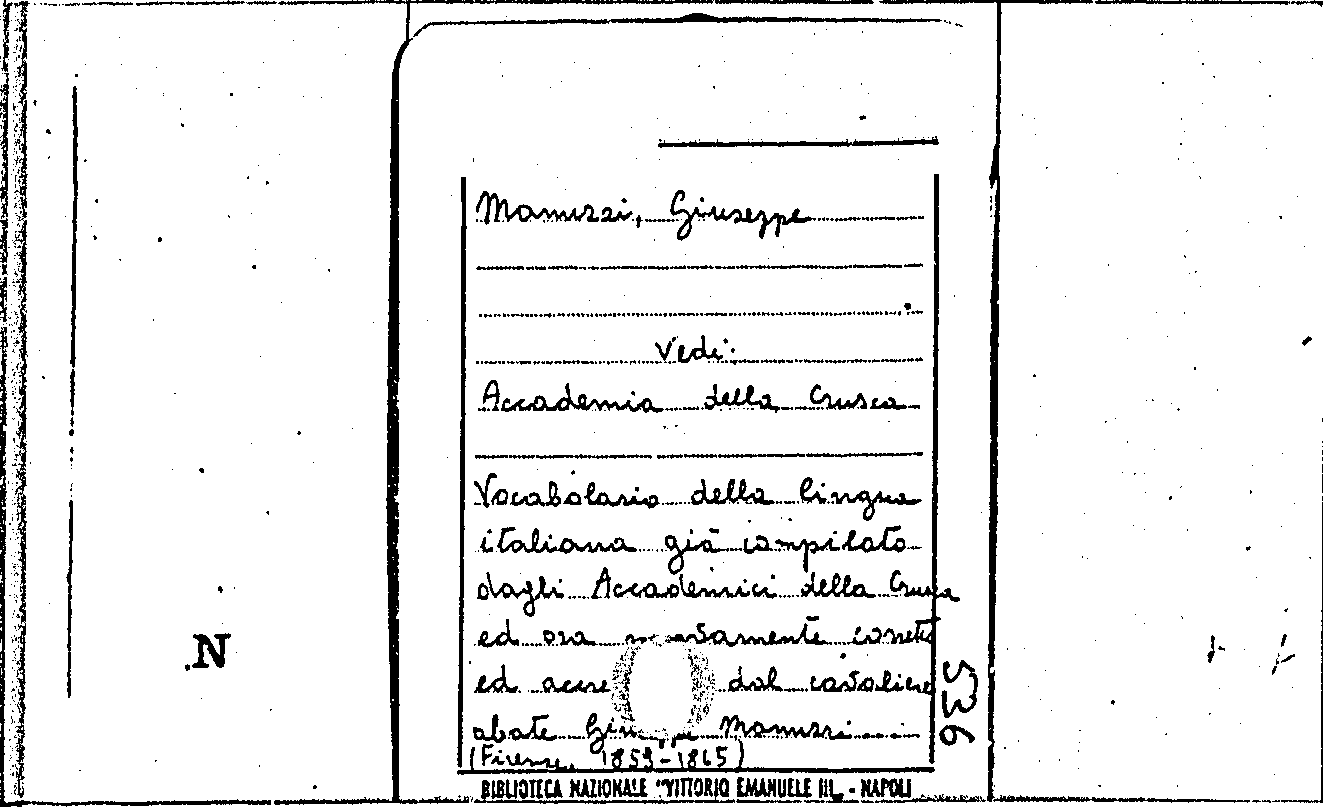 Manuzzi, Giuseppe
Vedi:
Accademia della Crusca
Vocabolario della lingua
italiana già compilato
dagli Accademici della Crusca
ed ora corretto
ed dal cavaliere
abate Giuseppe Manuzzi....
(Firenze, 1859-1865)
536
N
BIBLIOTECA NAZIONALE "VITTORIO EMANUELE III" - NAPOLI